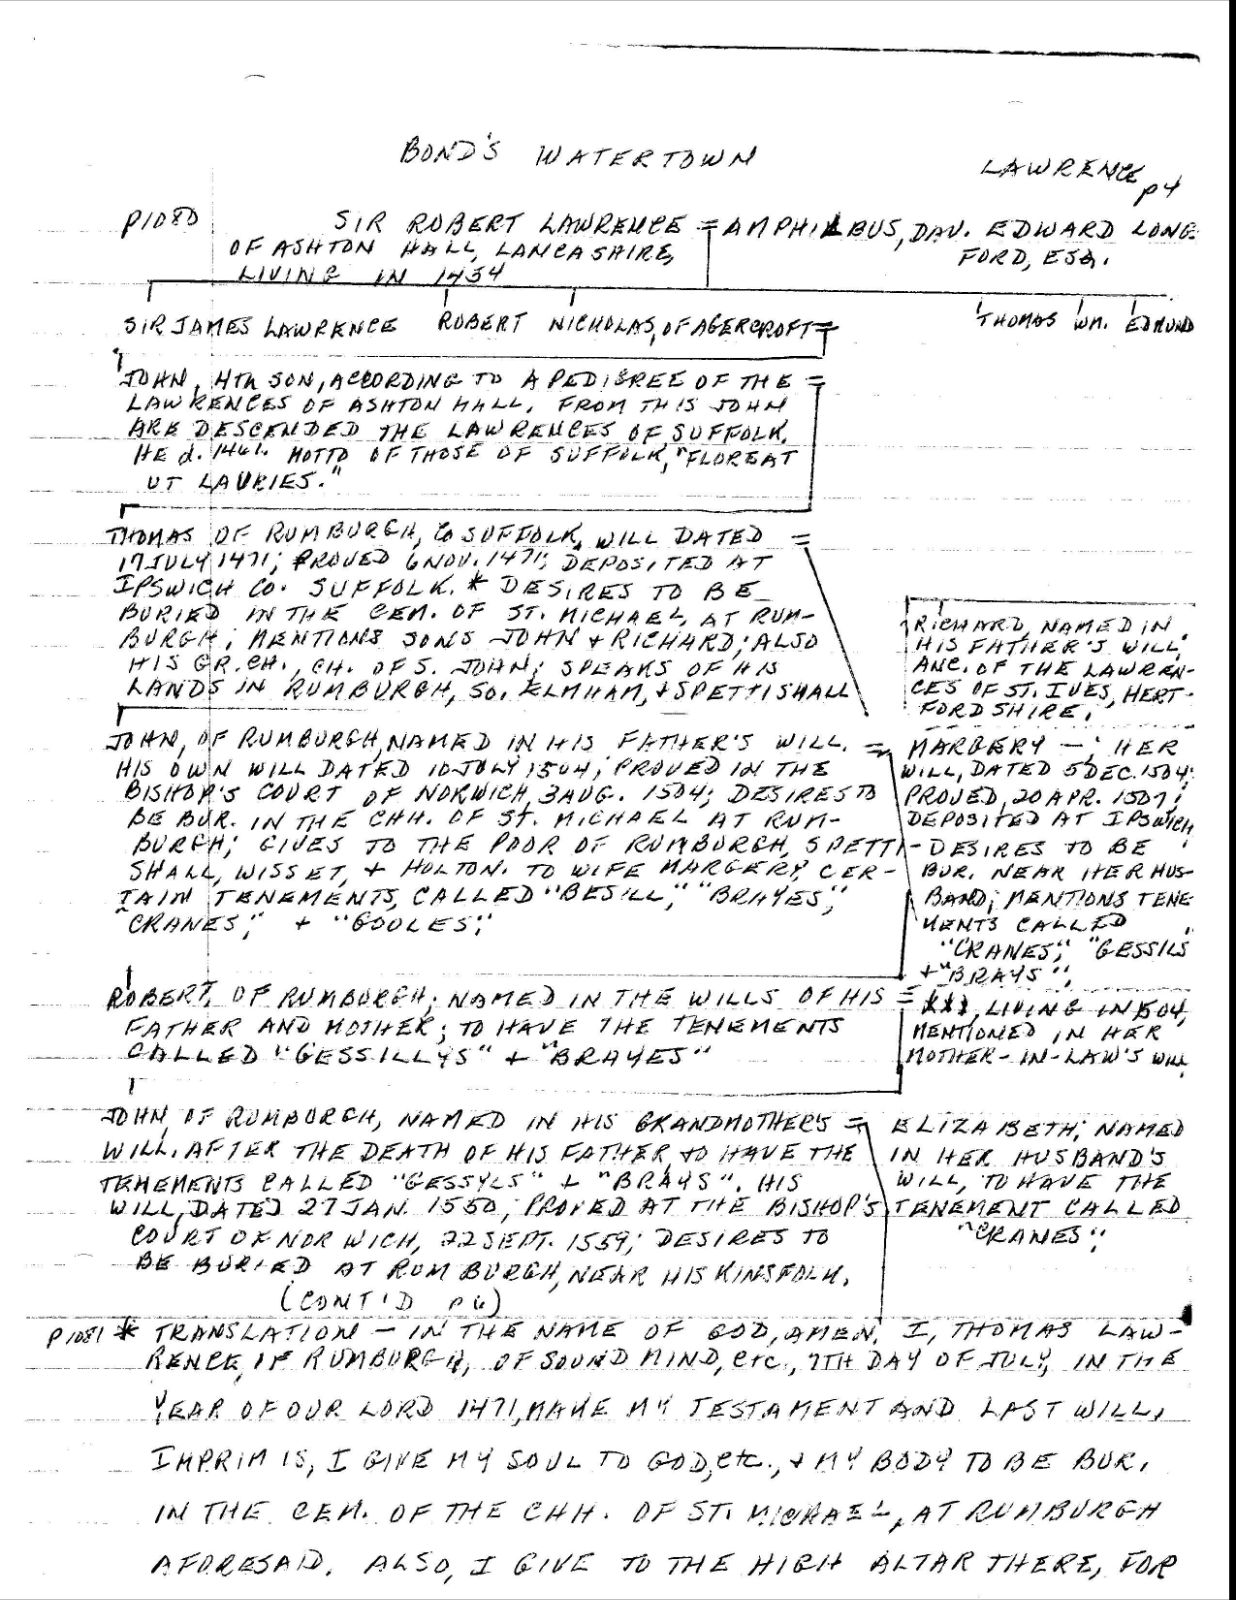 BOND'S WATERTOWN
LAWRENCE
p4
P1080
SIR ROBERT LAWRENCE = AMPHILBUS, DAU. EDWARD LONG-
OF ASHTON HALL, LANCASHIRE, FORD, ESQ.
LIVING IN 1454
SIR JAMES LAWRENCE ROBERT NICHOLAS, OF AGERCROFT = THOMAS WM. EDMUND
JOHN, 4TH SON, ACCORDING TO A PEDIGREE OF THE =
LAWRENCES OF ASHTON HALL. FROM THIS JOHN
ARE DESCENDED THE LAWRENCES OF SUFFOLK.
HE d. 1461. MOTTO OF THOSE OF SUFFOLK, "FLOREAT
UT LAURIES."
THOMAS OF RUMBURGH, CO SUFFOLK, WILL DATED =
17 JULY 1471; PROVED 6 NOV. 1471; DEPOSITED AT
IPSWICH CO. SUFFOLK. * DESIRES TO BE
BURIED IN THE CEM. OF ST. MICHAEL, AT RUM-
BURGH; MENTIONS SONS JOHN + RICHARD; ALSO
HIS GR.CH., CH. OF S. JOHN; SPEAKS OF HIS
LANDS IN RUMBURGH, SO. ELMHAM, + SPETTISHALL
RICHARD, NAMED IN
HIS FATHER'S WILL,
ANC. OF THE LAWREN-
CES OF ST. IVES, HERT-
FORDSHIRE.
JOHN, OF RUMBURGH, NAMED IN HIS FATHER'S WILL. =
HIS OWN WILL DATED 10 JULY 1504; PROVED IN THE
BISHOP'S COURT OF NORWICH, 3 AUG. 1504; DESIRES TO
BE BUR. IN THE CHH. OF ST. MICHAEL AT RUM-
BURGH; GIVES TO THE POOR OF RUMBURGH, SPETTI-
SHALL, WISSET, + HOLTON. TO WIFE MARGERY, CER-
TAIN TENEMENTS, CALLED "BESILL," "BRAYES,"
"CRANES," + "GOOLES;"
MARGERY —; HER
WILL, DATED 5 DEC. 1504;
PROVED, 20 APR. 1507;
DEPOSITED AT IPSWICH;
DESIRES TO BE
BUR. NEAR HER HUS-
BAND; MENTIONS TENE-
MENTS CALLED
"CRANES," "GESSILS"
+ "BRAYS".
ROBERT, OF RUMBURGH; NAMED IN THE WILLS OF HIS =
FATHER AND MOTHER; TO HAVE THE TENEMENTS
CALLED "GESSILLYS" + "BRAYES"
LIVING IN 1504,
MENTIONED IN HER
MOTHER-IN-LAW'S WILL
JOHN, OF RUMBURGH, NAMED IN HIS GRANDMOTHER'S =
WILL, AFTER THE DEATH OF HIS FATHER, TO HAVE THE
TENEMENTS CALLED "GESSYLS" + "BRAYS". HIS
WILL, DATED 27 JAN. 1550; PROVED AT THE BISHOP'S
COURT OF NORWICH, 22 SEPT. 1559; DESIRES TO
BE BURIED AT RUMBURGH, NEAR HIS KINSFOLK.
(CONT'D p 6)
ELIZABETH; NAMED
IN HER HUSBAND'S
WILL, TO HAVE THE
TENEMENT CALLED
"CRANES".
P1081 * TRANSLATION — IN THE NAME OF GOD, AMEN. I, THOMAS LAW-
RENCE, OF RUMBURGH, OF SOUND MIND, etc., 7TH DAY OF JULY, IN THE
YEAR OF OUR LORD 1471, MAKE MY TESTAMENT AND LAST WILL.
IMPRIMIS, I GIVE MY SOUL TO GOD, etc., + MY BODY TO BE BUR.
IN THE CEM. OF THE CHH. OF ST. MICHAEL, AT RUMBURGH
AFORESAID. ALSO, I GIVE TO THE HIGH ALTAR THERE, FOR